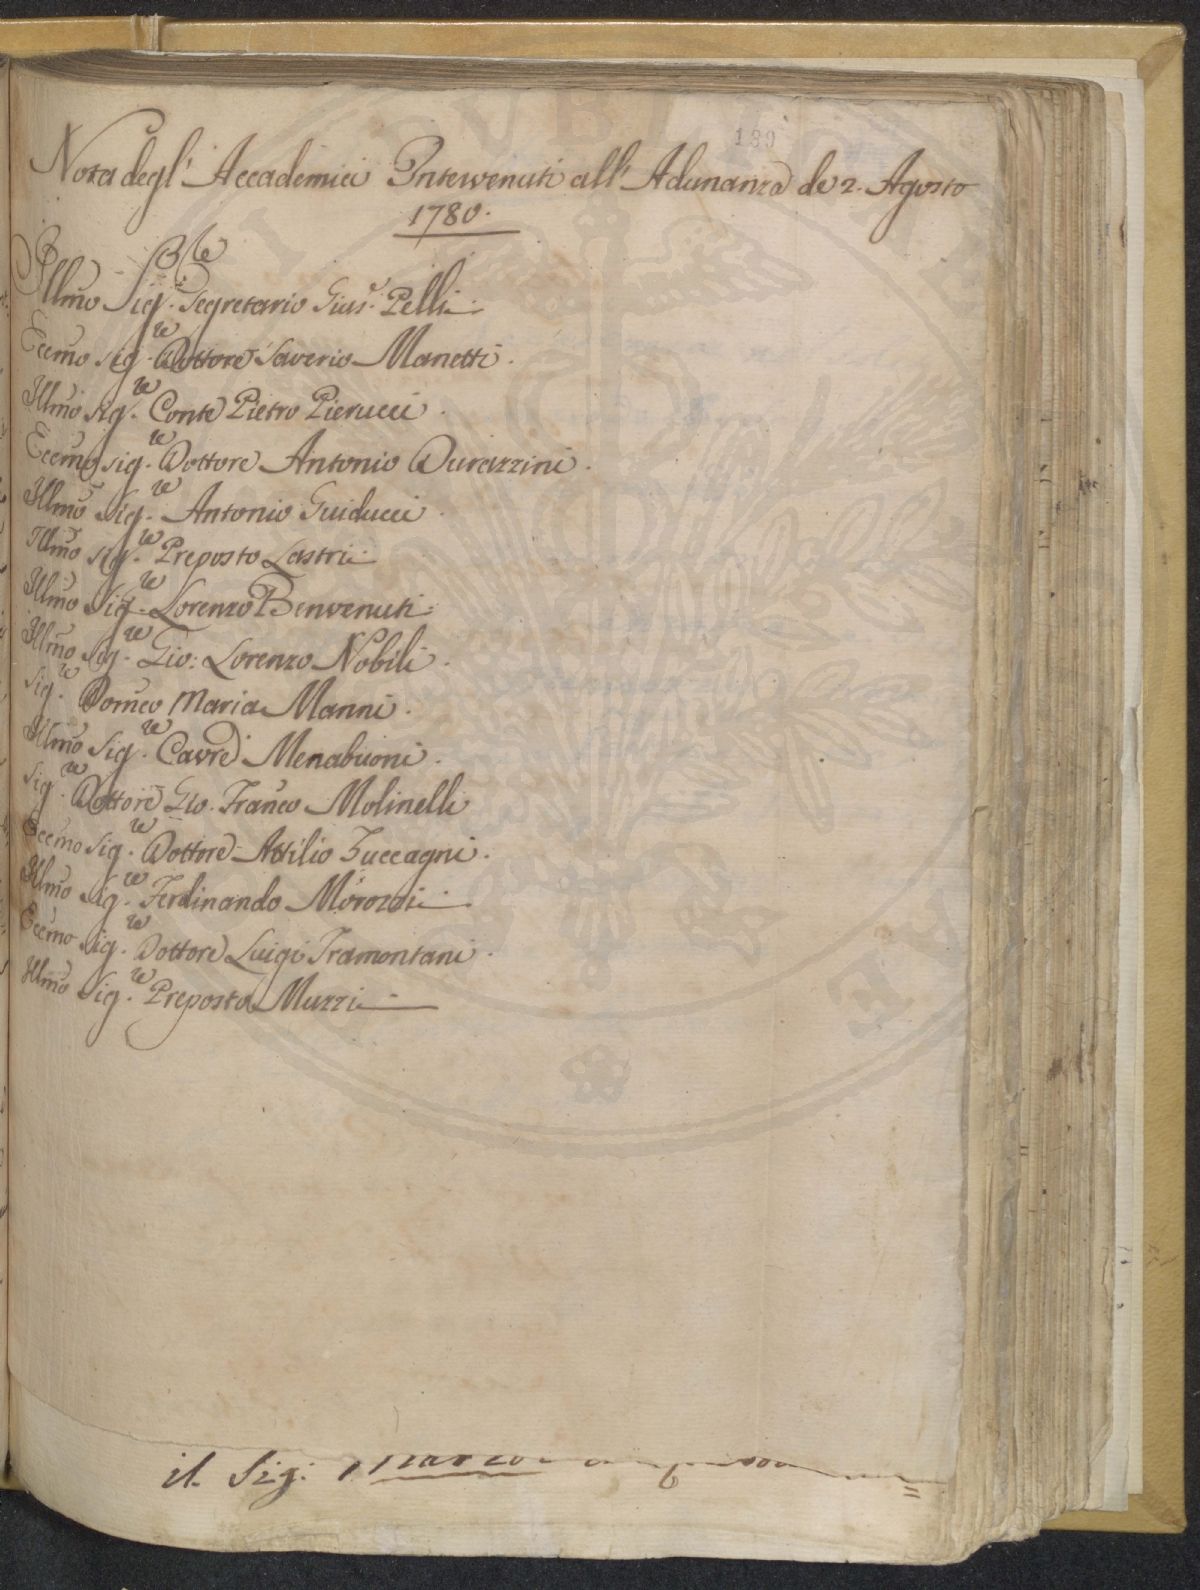 189
Nota degl' Accademici Intervenuti all' Adunanza de 2. Agosto
1780.
Illmo Sig.re Segretario Gius.e Pelli
Eccmo Sig.re Dottore Saverio Manetti.
Illmo Sig.re Conte Pietro Pierucci.
Eccmo Sig.re Dottore Antonio Durazzini.
Illmo Sig.re Antonio Guiducci.
Illmo Sig.re Preposto Lastri
Illmo Sig.re Lorenzo Benvenuti
Illmo Sig.re Gio: Lorenzo Nobili.
Sig.re Domco Maria Manni.
Illmo Sig.re Cavre Menabuoni.
Sig.re Dottore Gio. Franco Molinelli
Eccmo Sig.re Dottore Attilio Zuccagni.
Illmo Sig.re Ferdinando Morozzi
Eccmo Sig.re Dottore Luigi Tramontani.
Illmo Sig.re Preposto Muzzi
il Sig: